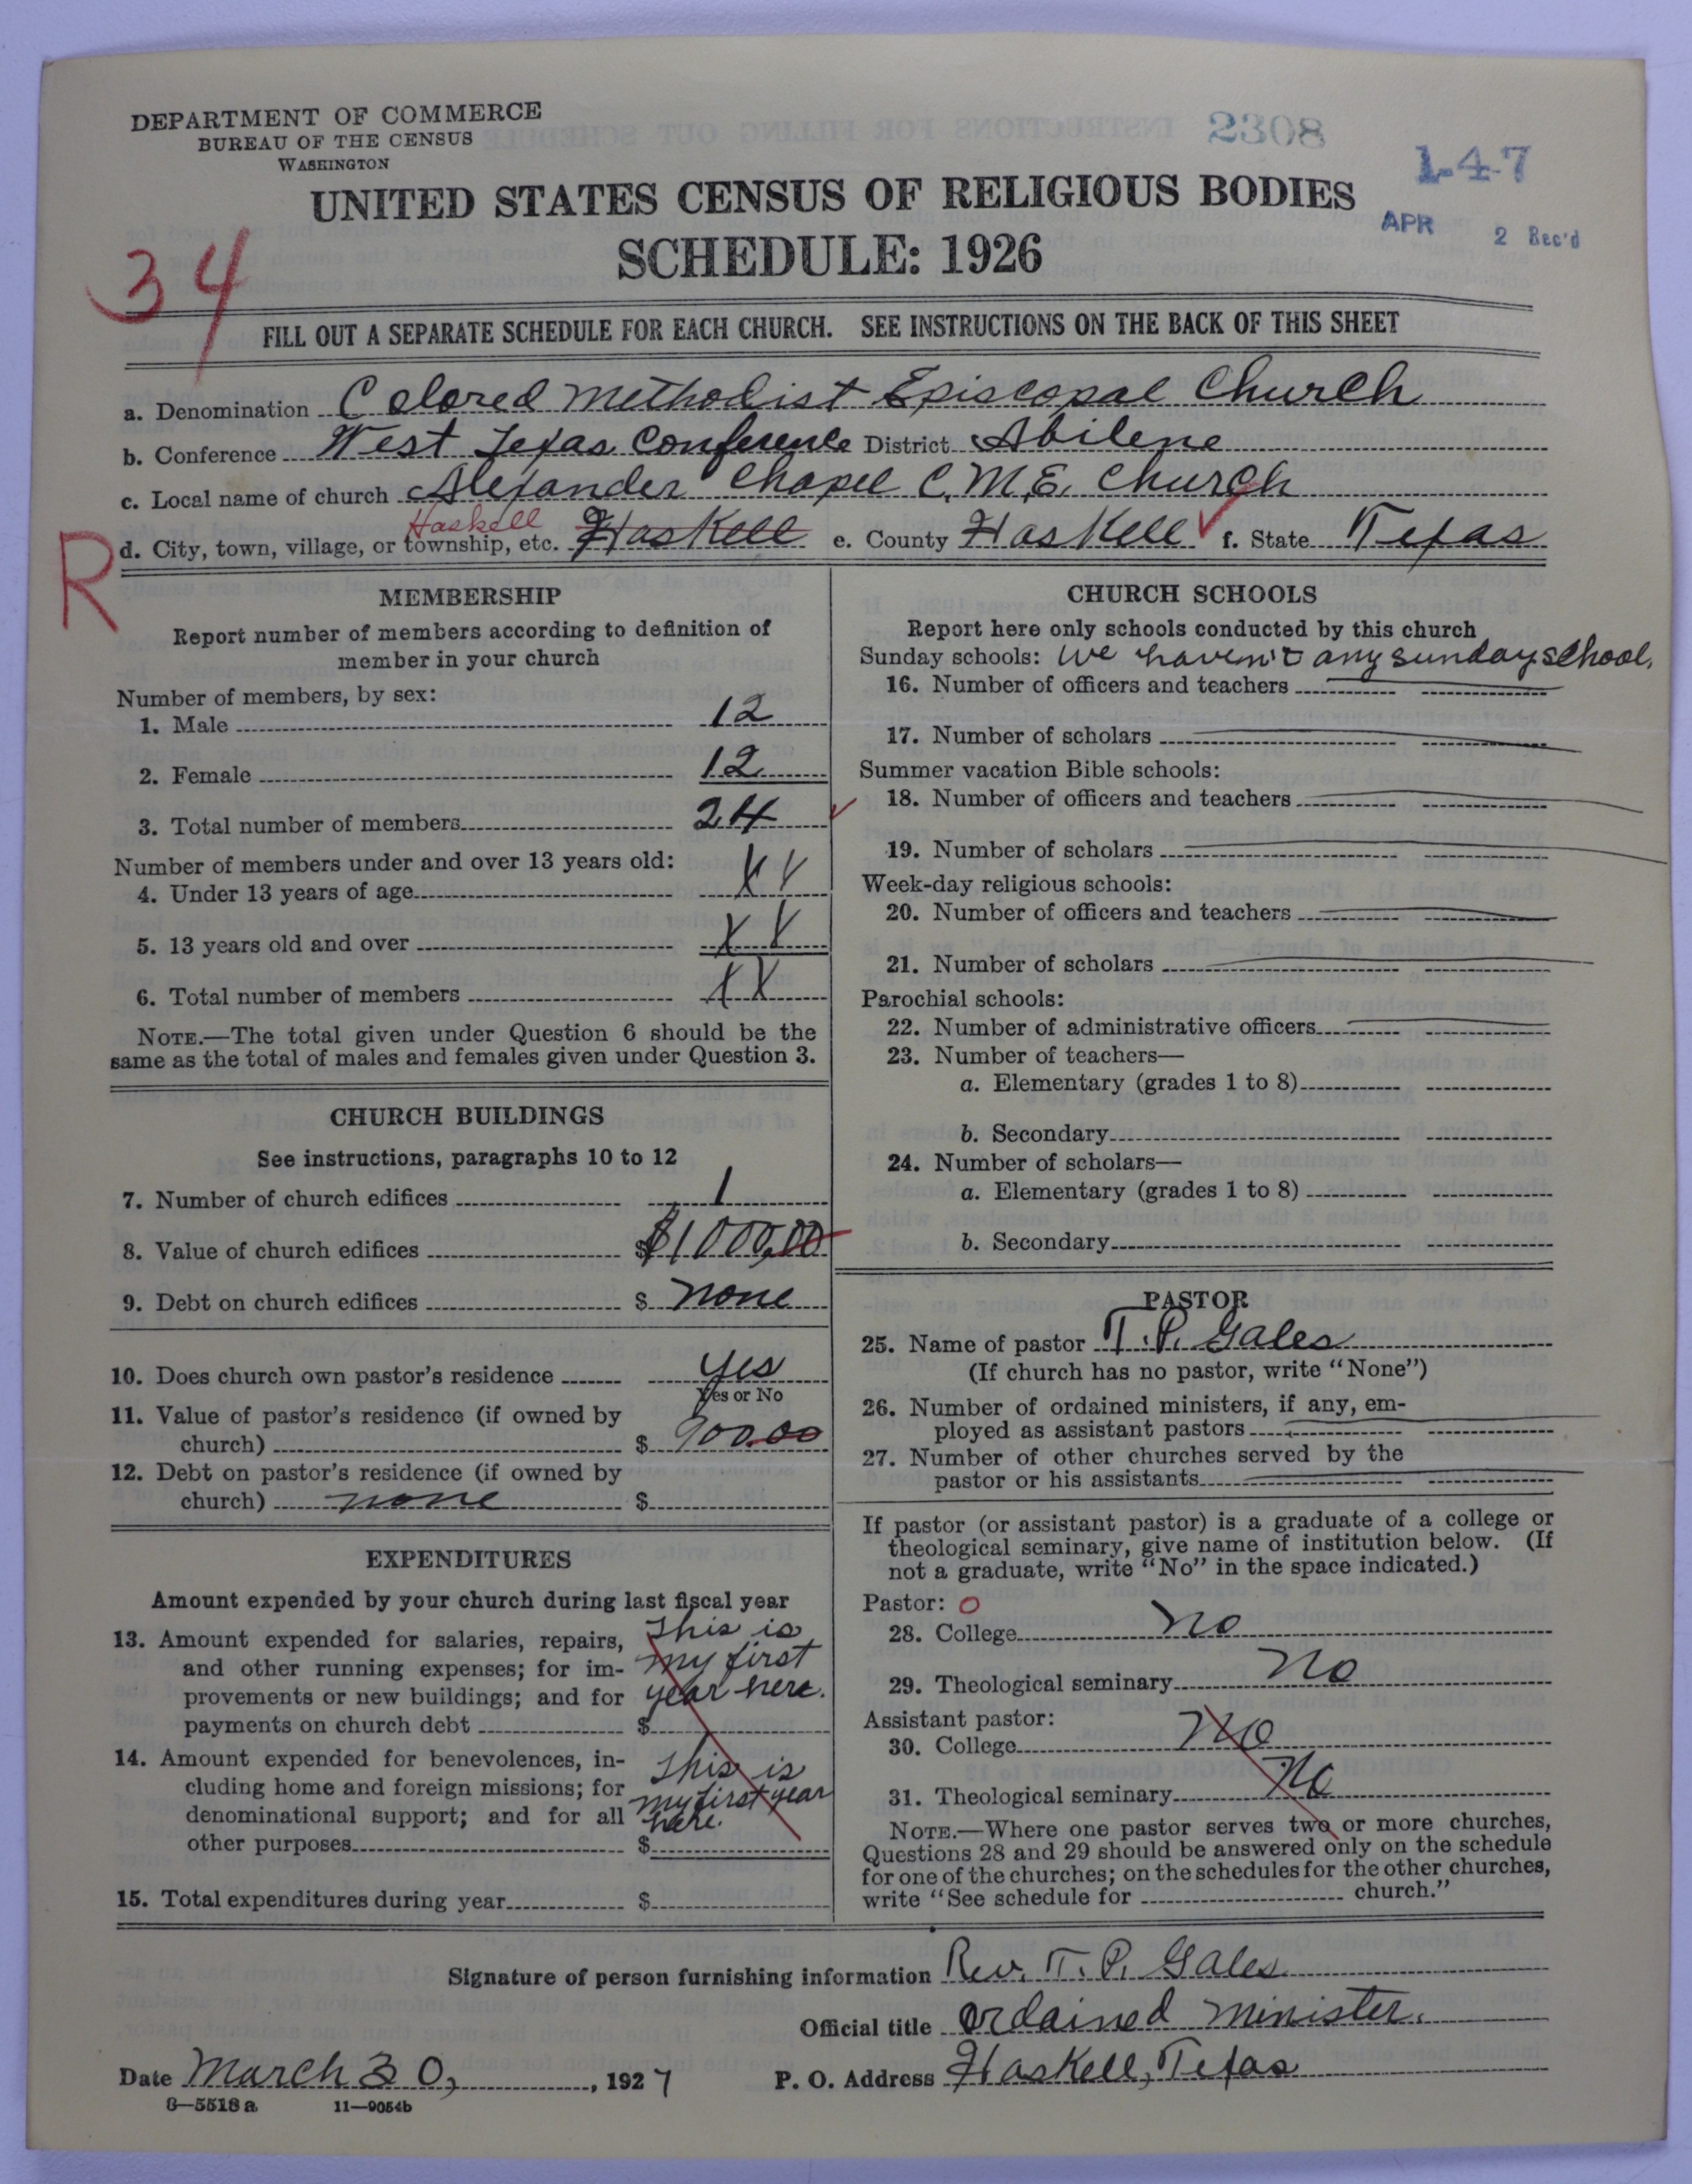 DEPARTMENT OF COMMERCE
BUREAU OF THE CENSUS
WASHINGTON
2308
1-47
UNITED STATES CENSUS OF RELIGIOUS BODIES
APR 2 Rec'd
SCHEDULE: 1926
34
FILL OUT A SEPARATE SCHEDULE FOR EACH CHURCH. SEE INSTRUCTIONS ON THE BACK OF THIS SHEET
a. Denomination Colored Methodist Episcopal Church
b. Conference West Texas Conference District Abilene
c. Local name of church Alexander Chapel C.M.E. Church
Haskell
R
d. City, town, village, or township, etc. Haskell e. County Haskell f. State Texas
MEMBERSHIP
Report number of members according to definition of
member in your church
Number of members, by sex:
1. Male 12
2. Female 12
3. Total number of members 24
Number of members under and over 13 years old:
4. Under 13 years of age XX
5. 13 years old and over XX
6. Total number of members XX
NOTE.—The total given under Question 6 should be the
same as the total of males and females given under Question 3.
CHURCH BUILDINGS
See instructions, paragraphs 10 to 12
7. Number of church edifices 1
8. Value of church edifices $ $1000,00
9. Debt on church edifices $ none
10. Does church own pastor's residence yes
Yes or No
11. Value of pastor's residence (if owned by
church) $ 900.00
12. Debt on pastor's residence (if owned by
church) none $
EXPENDITURES
Amount expended by your church during last fiscal year
13. Amount expended for salaries, repairs, This is
and other running expenses; for im- my first
provements or new buildings; and for year here.
payments on church debt $
14. Amount expended for benevolences, in- This is
cluding home and foreign missions; for my first year
denominational support; and for all here.
other purposes $
15. Total expenditures during year $
CHURCH SCHOOLS
Report here only schools conducted by this church
Sunday schools: We haven't any sunday school.
16. Number of officers and teachers
17. Number of scholars
Summer vacation Bible schools:
18. Number of officers and teachers
19. Number of scholars
Week-day religious schools:
20. Number of officers and teachers
21. Number of scholars
Parochial schools:
22. Number of administrative officers
23. Number of teachers—
a. Elementary (grades 1 to 8)
b. Secondary
24. Number of scholars—
a. Elementary (grades 1 to 8)
b. Secondary
PASTOR
25. Name of pastor T.P. Gales
(If church has no pastor, write "None")
26. Number of ordained ministers, if any, em-
ployed as assistant pastors
27. Number of other churches served by the
pastor or his assistants
If pastor (or assistant pastor) is a graduate of a college or
theological seminary, give name of institution below. (If
not a graduate, write "No" in the space indicated.)
Pastor: O
28. College no
29. Theological seminary no
Assistant pastor:
30. College No
31. Theological seminary No
NOTE.—Where one pastor serves two or more churches,
Questions 28 and 29 should be answered only on the schedule
for one of the churches; on the schedules for the other churches,
write "See schedule for church."
Signature of person furnishing information Rev. T. P. Gales
Official title ordained minister.
Date March 30, 1927 P. O. Address Haskell, Texas
8—5518 a 11—9054b